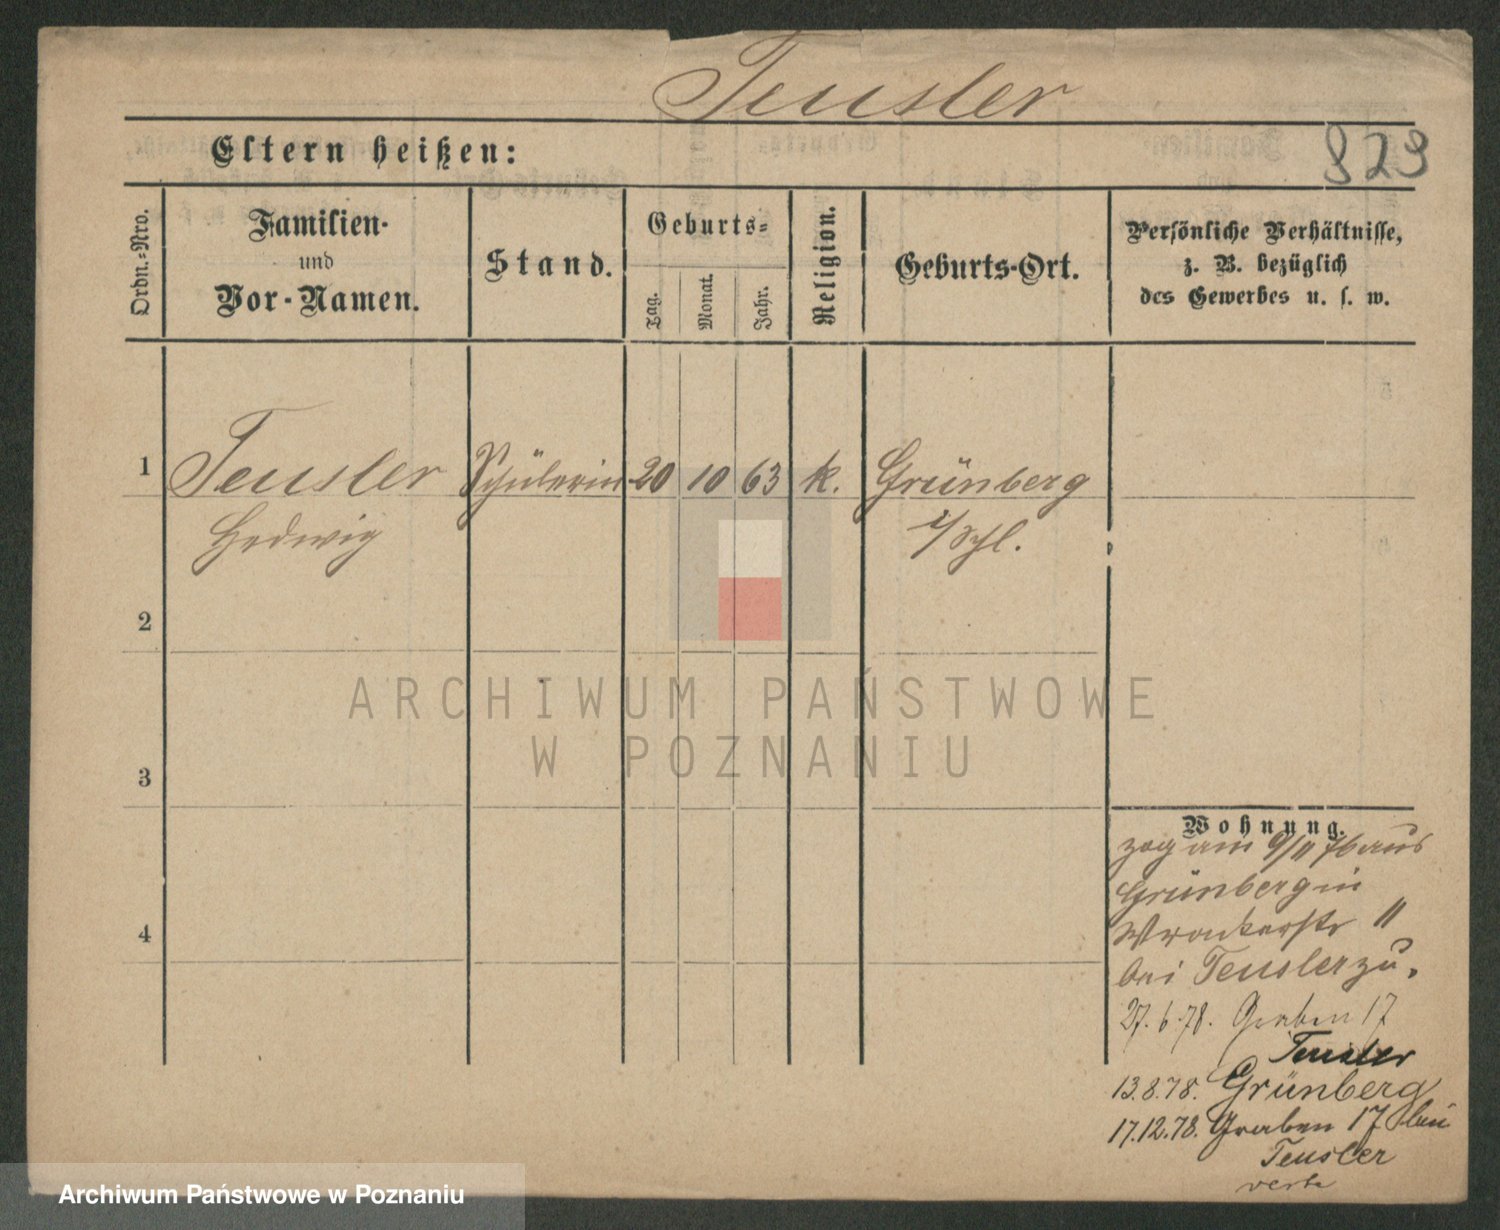 Teusler
Eltern heißen:
823
Ordn.-Nro.
Familien-
und
Vor-Namen.
Stand.
Geburts-
Tag.
Monat.
Jahr.
Religion.
Geburts-Ort.
Persönliche Verhältnisse,
z. B. bezüglich
des Gewerbes u. s. w.
1
Teusler
Schülerin
20
10
63
k.
Grünberg
Hedwig
i/Schl.
2
ARCHIWUM PAŃSTWOWE
W POZNANIU
3
Wohnung.
zog am 9/11 76 aus
Grünberg in
Wronkerstr 11
bei Teusler zu.
27. 6. 78. Graben 17
Teusler
13.8.78. Grünberg
17.12.78. Graben 17 bei
Teusler
4
Archiwum Państwowe w Poznaniu